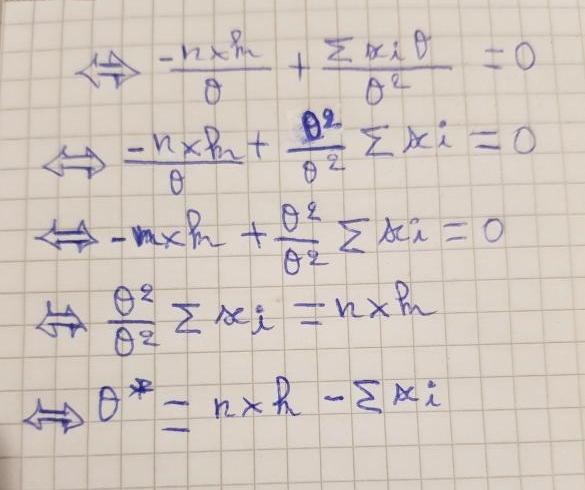 ⇔ -n×h/θ + Σxiθ/θ² = 0
⇔ -n×h/θ + θ²/θ² Σxi = 0
⇔ -n×h + θ²/θ² Σxi = 0
⇔ θ²/θ² Σxi = n×h
⇔ θ* = n×h - Σxi